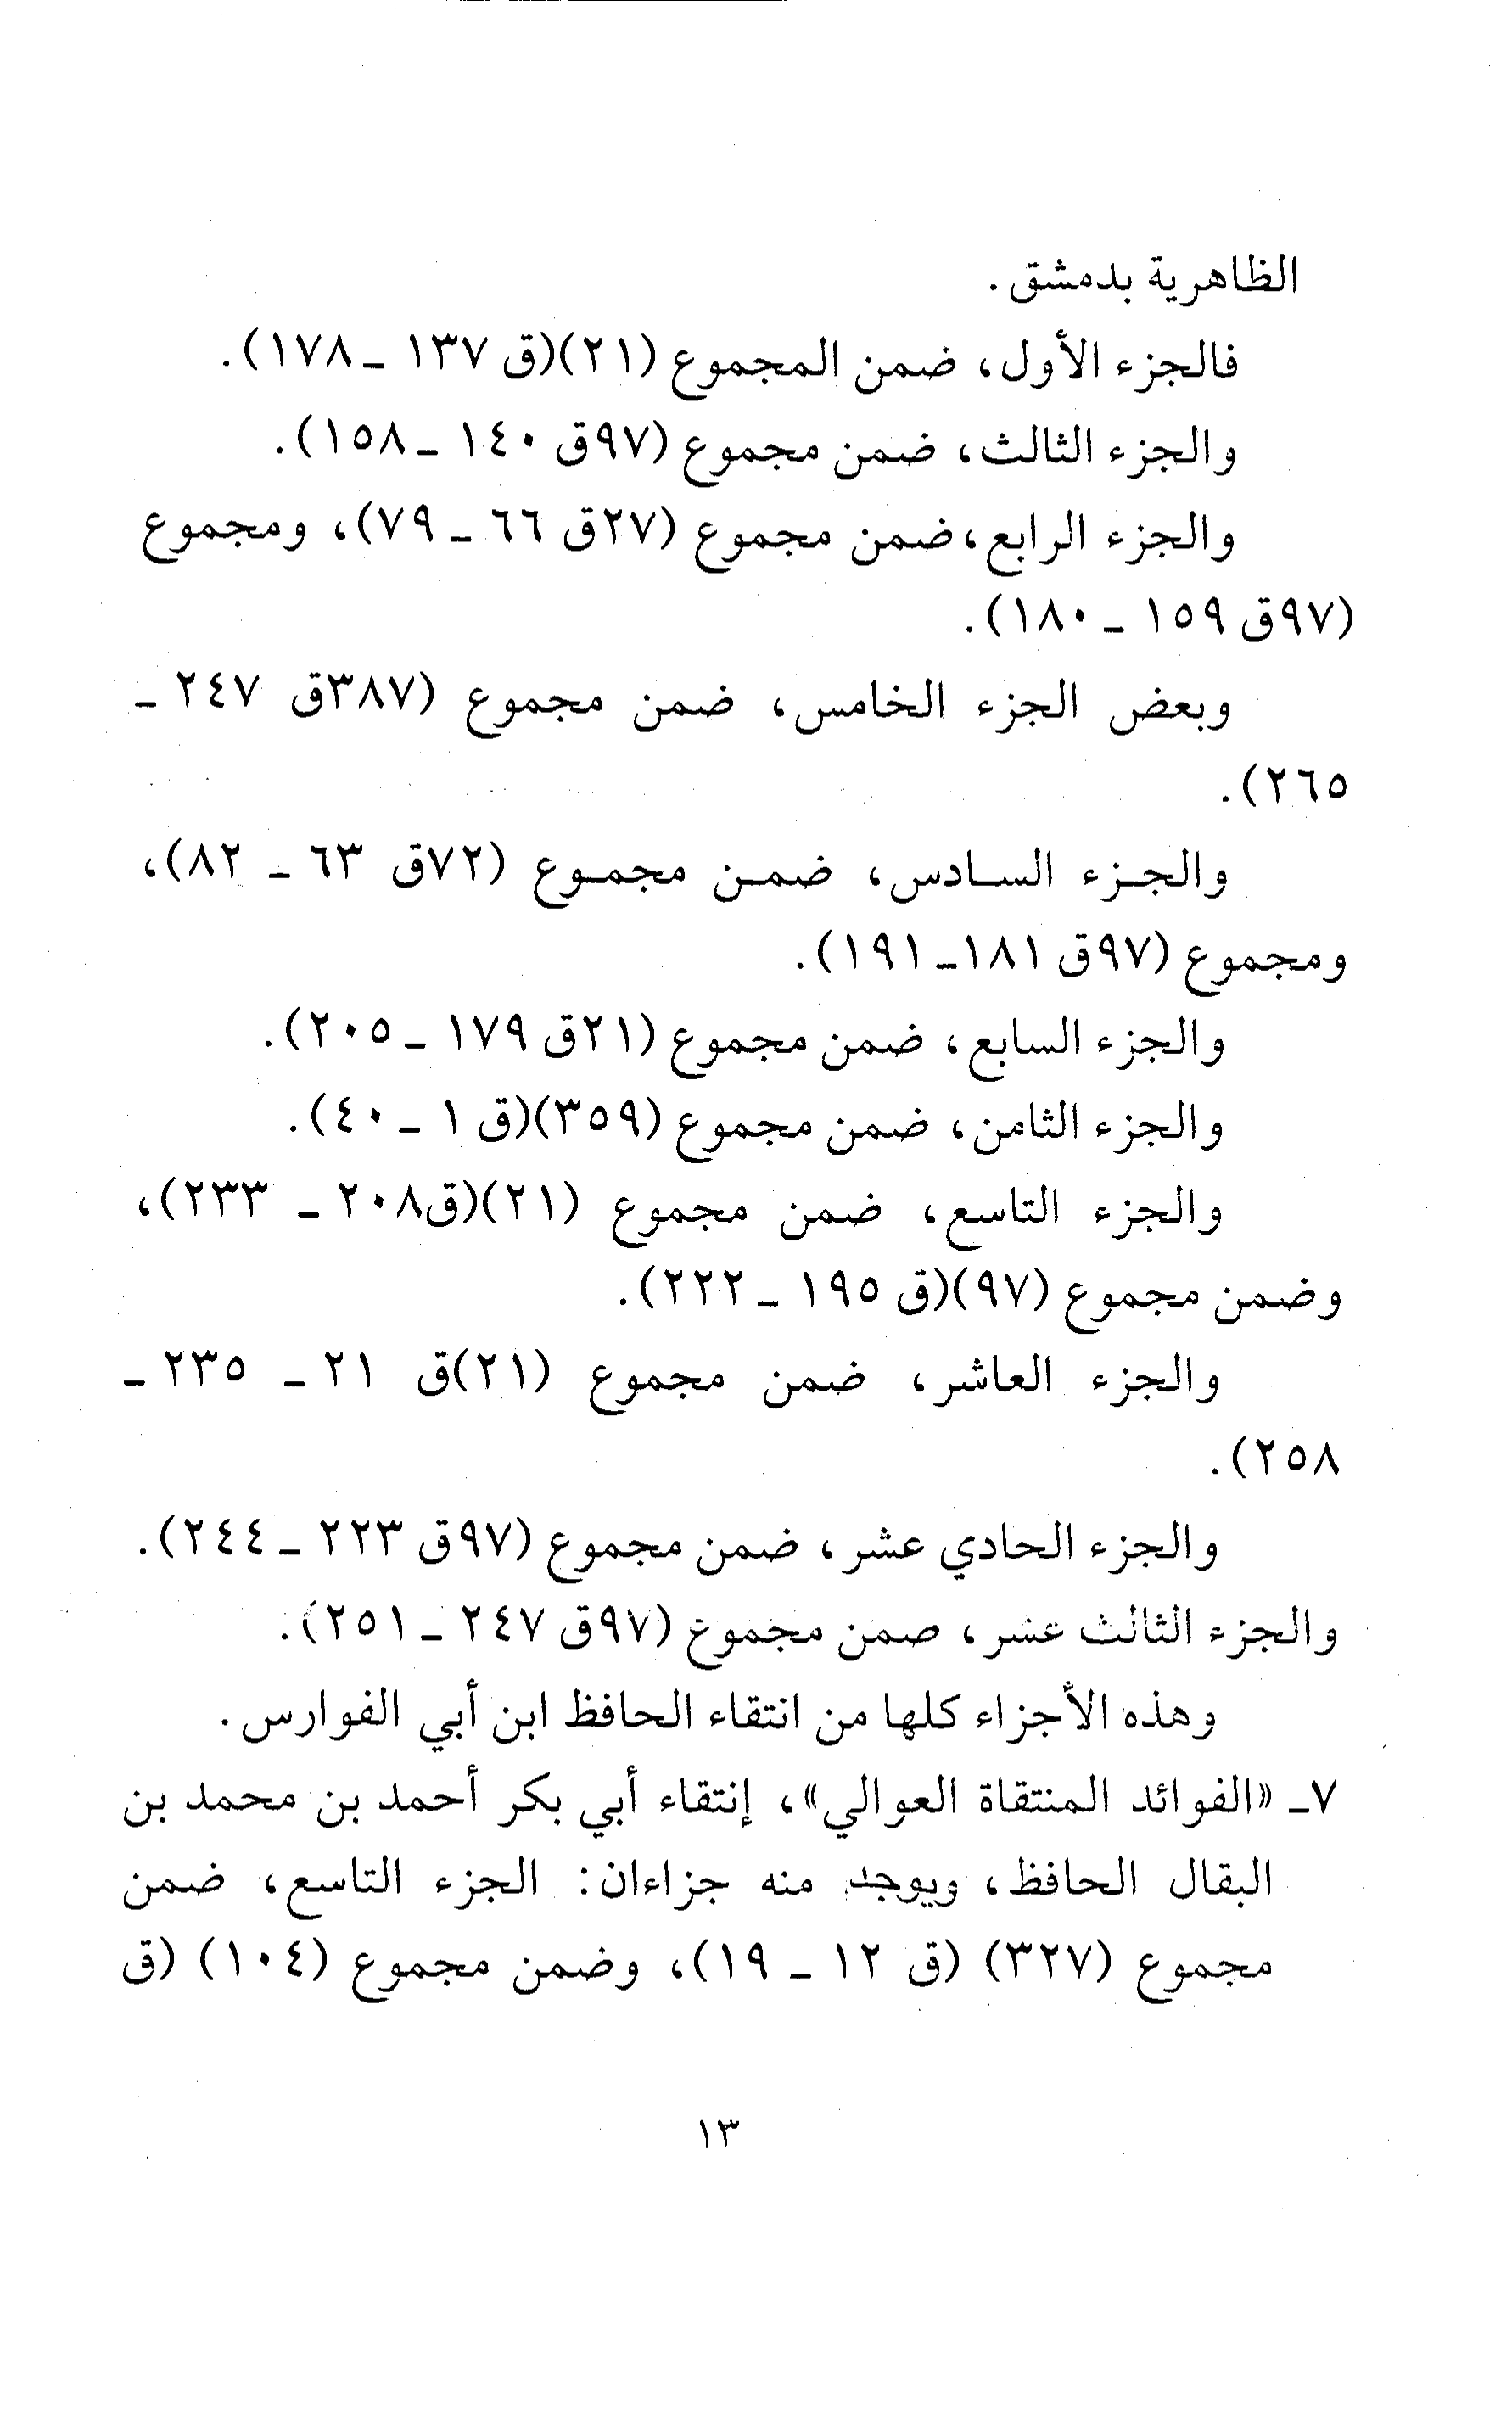 الظاهرية بدمشق.
فالجزء الأول، ضمن المجموع (٢١)(ق ١٣٧ ـ ١٧٨).
والجزء الثالث، ضمن مجموع (٩٧ق ١٤٠ ـ ١٥٨).
والجزء الرابع، ضمن مجموع (٢٧ق ٦٦ ـ ٧٩)، ومجموع
(٩٧ق ١٥٩ ـ ١٨٠).
وبعض الجزء الخامس، ضمن مجموع (٣٨٧ق ٢٤٧ ـ
٢٦٥).
والجزء السادس، ضمن مجموع (٧٢ق ٦٣ ـ ٨٢)،
ومجموع (٩٧ق ١٨١ـ ١٩١).
والجزء السابع، ضمن مجموع (٢١ق ١٧٩ ـ ٢٠٥).
والجزء الثامن، ضمن مجموع (٣٥٩)(ق ١ ـ ٤٠).
والجزء التاسع، ضمن مجموع (٢١)(ق٢٠٨ ـ ٢٣٣)،
وضمن مجموع (٩٧)(ق ١٩٥ ـ ٢٢٢).
والجزء العاشر، ضمن مجموع (٢١)ق ٢١ ـ ٢٣٥ ـ
٢٥٨).
والجزء الحادي عشر، ضمن مجموع (٩٧ق ٢٢٣ ـ ٢٤٤).
والجزء الثالث عشر، ضمن مجموع (٩٧ق ٢٤٧ ـ ٢٥١).
وهذه الأجزاء كلها من انتقاء الحافظ ابن أبي الفوارس.
٧ـ «الفوائد المنتقاة العوالي»، إنتقاء أبي بكر أحمد بن محمد بن
البقال الحافظ، ويوجد منه جزاءان: الجزء التاسع، ضمن
مجموع (٣٢٧) (ق ١٢ ـ ١٩)، وضمن مجموع (١٠٤) (ق
١٣